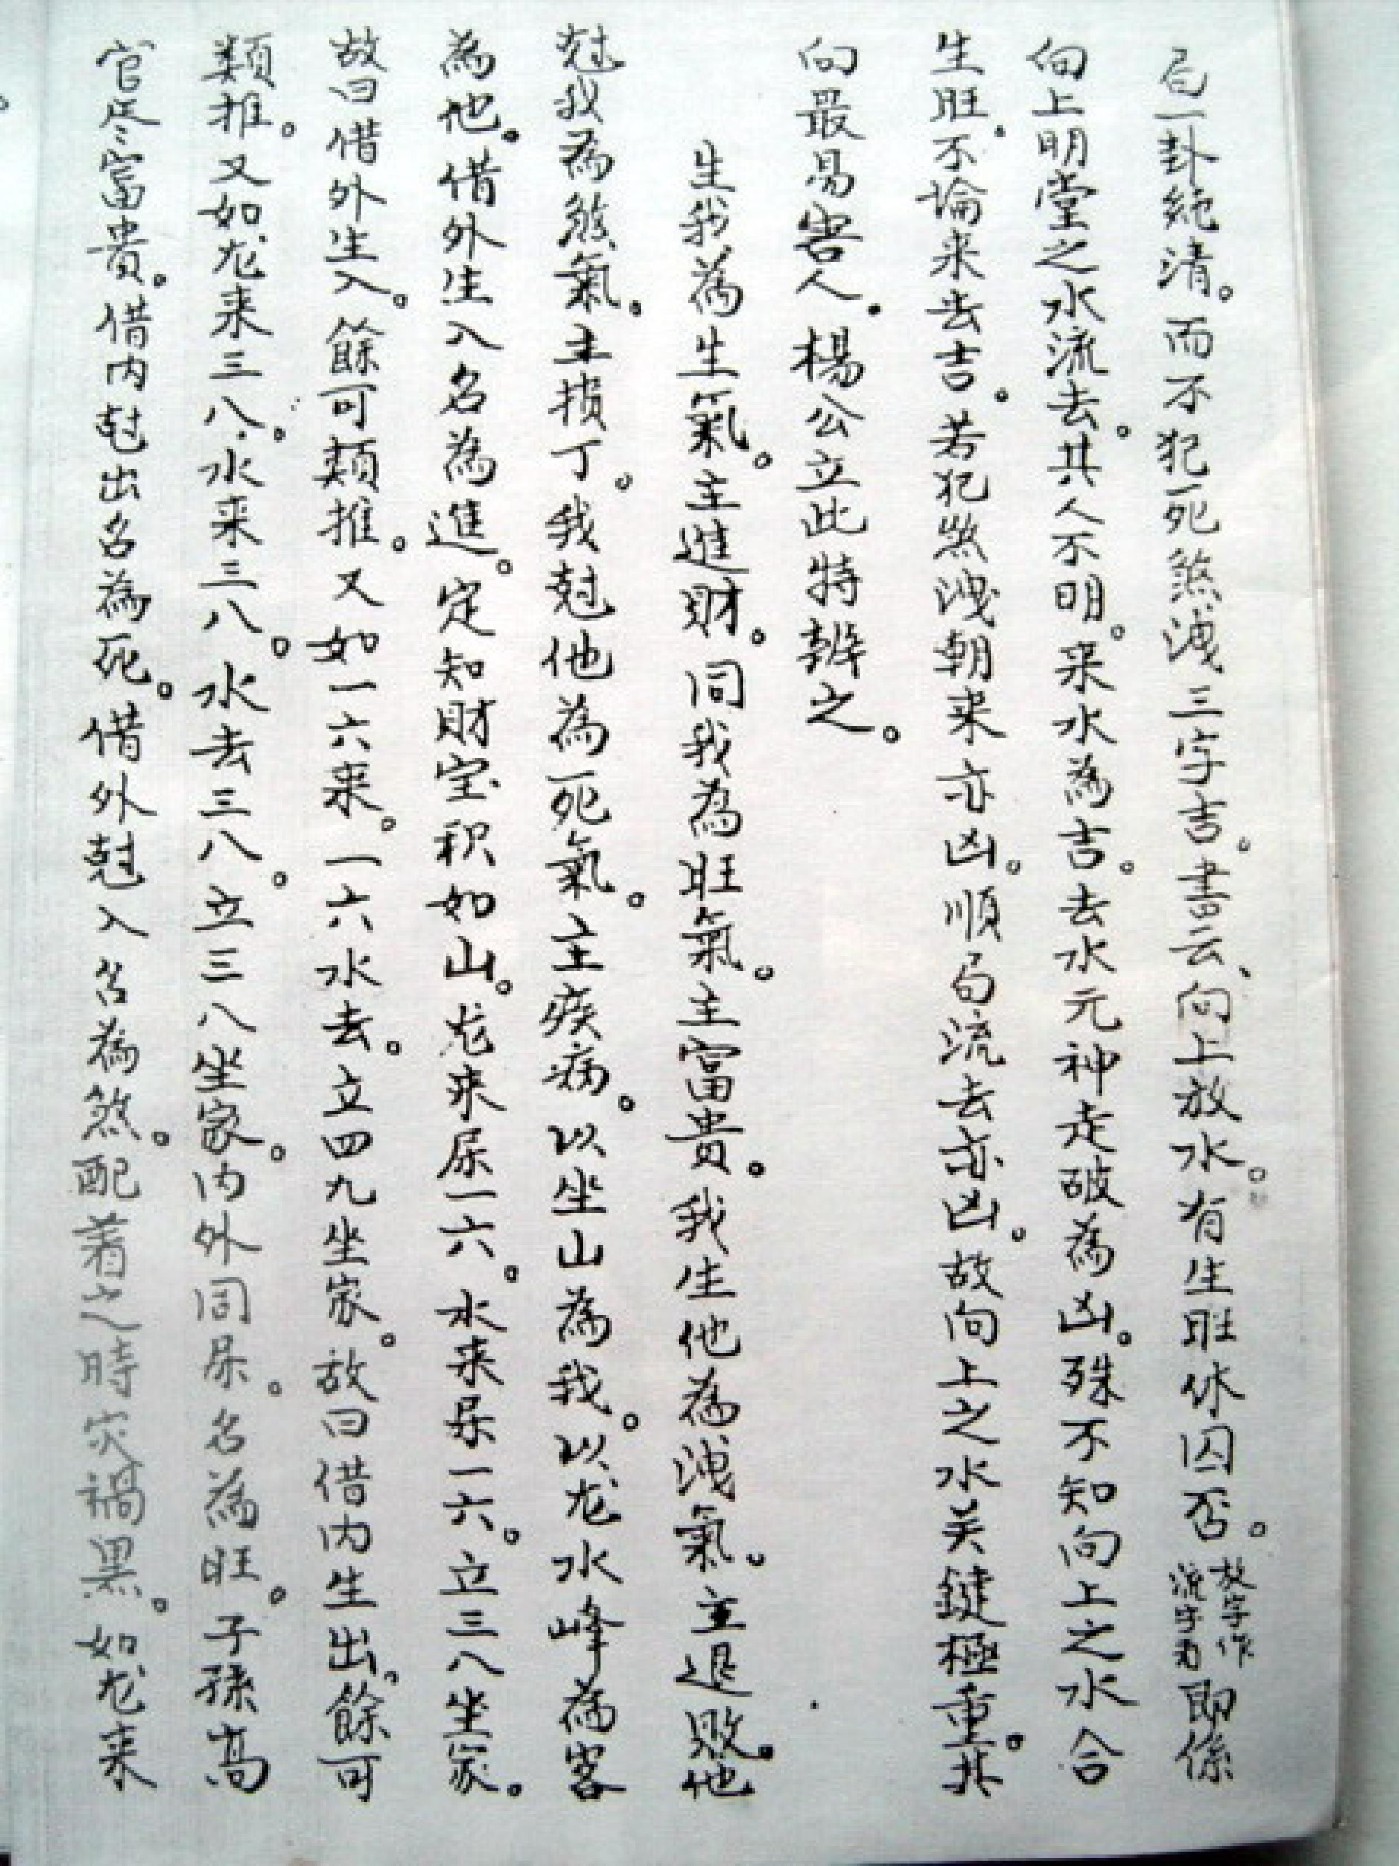 局一卦純清。而不犯死煞洩三字吉。書云、向上放水。有生旺休囚否。放字作流字看即係
向上明堂之水流去。其人不明。来水為吉。去水元神走破為凶。殊不知向上之水合
生旺。不論来去吉。若犯煞洩朝来亦凶。順局流去亦凶。故向上之水关鍵極重。其
向最易害人。楊公立此特辨之。
生我為生氣。主進財。同我為旺氣。主富貴。我生他為洩氣。主退敗。他
尅我為煞氣。主損丁。我尅他為死氣。主疾病。以坐山為我。以龙水峰為客
為他。借外生入名為進。定知財宝积如山。龙来屎一六。水来屎一六。立三八坐家。
故曰借外生入。餘可類推。又如一六来。一六水去。立四九坐家。故曰借内生出。餘可
類推。又如龙来三八。水来三八。水去三八。立三八坐家。内外同屎。名為旺。子孫高
官尽富貴。借内尅出名為死。借外尅入名為煞。配着之時灾禍黑。如龙来